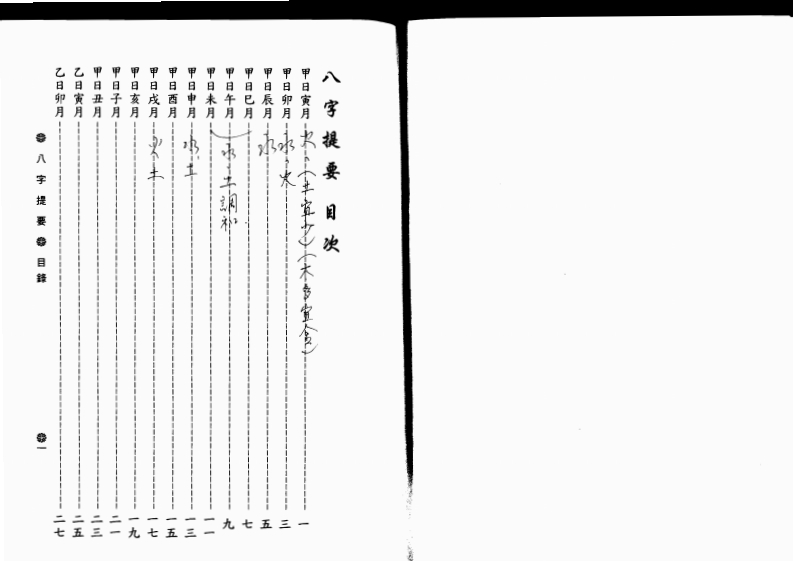 八字提要 目次
甲日寅月 火、(土宜少)(木多宜金) 一
甲日卯月 水、火 三
甲日辰月 水 五
甲日巳月 七
甲日午月 水、土調和 九
甲日未月 一一
甲日申月 水、土 一三
甲日酉月 一五
甲日戌月 火、土 一七
甲日亥月 一九
甲日子月 二一
甲日丑月 二三
乙日寅月 二五
乙日卯月 二七
八字提要 目錄 一